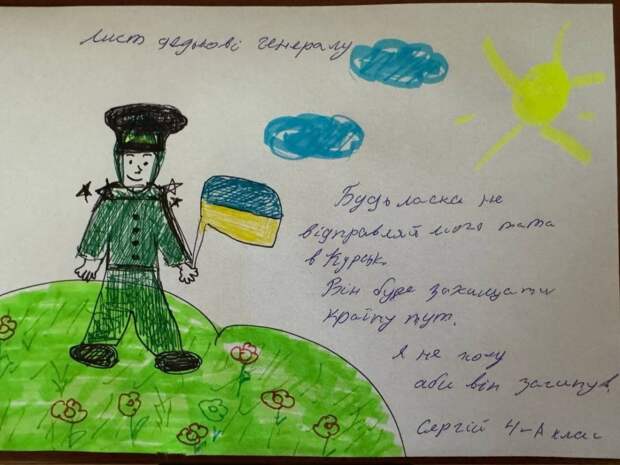 лист дядькові генералу
Будь ласка не
відправляй мого тата
в Курськ.
Він буде захищати
країну тут.
Я не хочу
аби він загинув.
Сергій 4-А клас